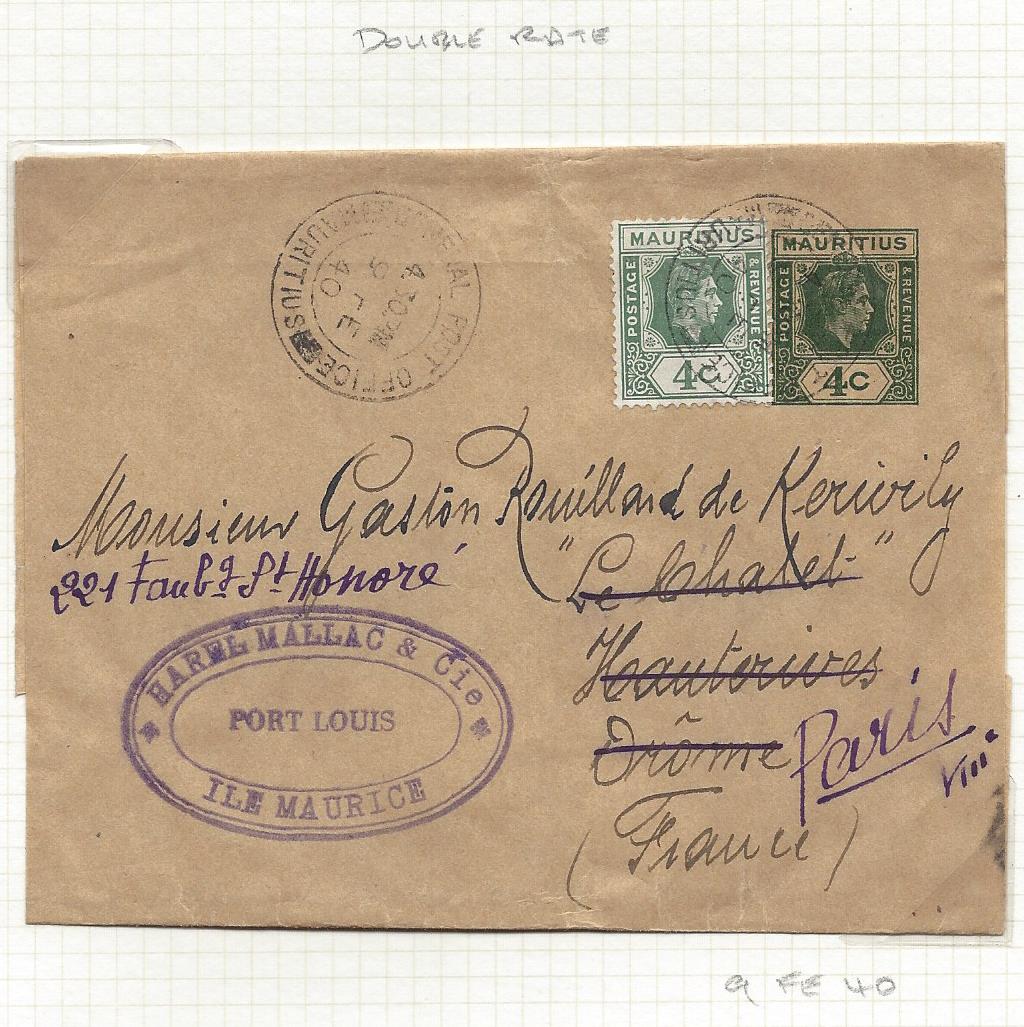 DOUBLE RATE
GENERAL POST OFFICE
MAURITIUS
4.30.PM
9 FE
40
MAURITIUS
POSTAGE & REVENUE
4c
MAURITIUS
POSTAGE & REVENUE
4c
Monsieur Gaston Rouillard de Kerivily
221 Faubg St Honoré
"Le Chalet"
Hauterives
Drôme
Paris
VIII.
(France)
HAREL MALLAC & Cie
PORT LOUIS
ILE MAURICE
9 FE 40